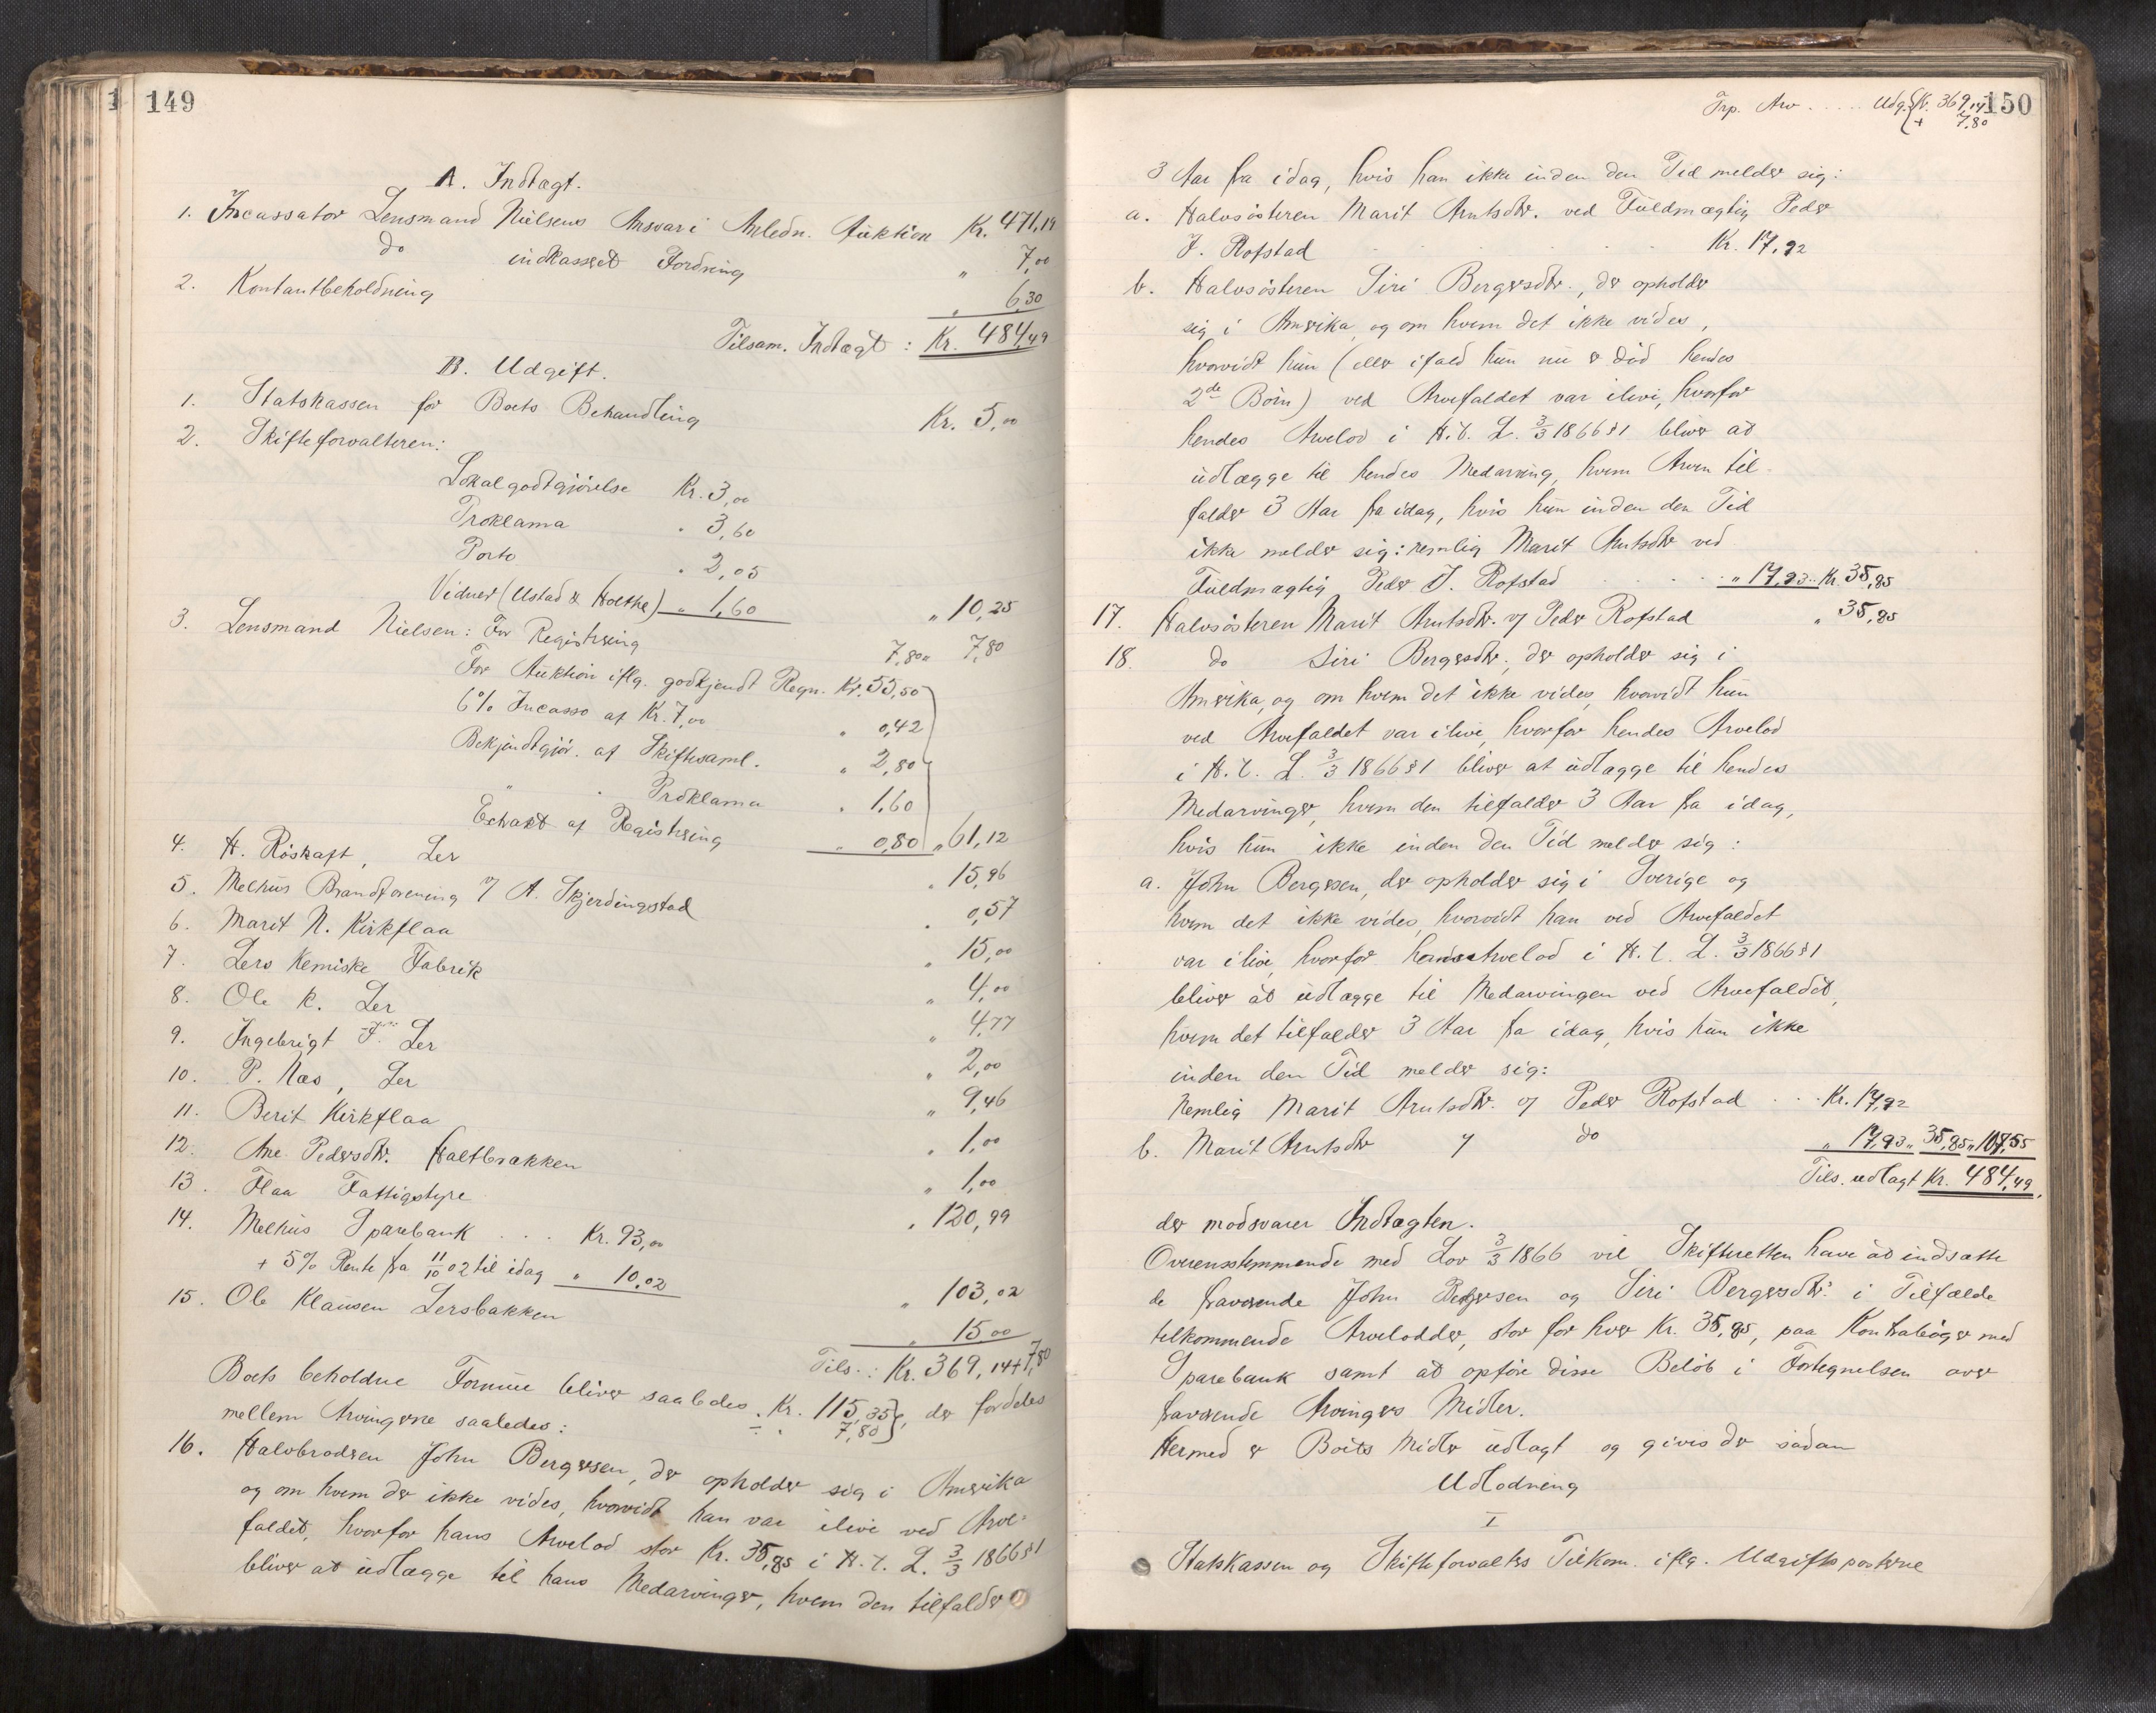 149
A. Indtægt.
1. Incassator Lensmand Nielsens Ansvar i Anledn. Auktion Kr. 471,19
do indkasseret Fordring " 7,00
2. Kontantbeholdning " 6,30
Tilsam. Indtægt: Kr. 484,49
B. Udgift.
1. Statskassen for Boets Behandling Kr. 5,00
2. Skifteforvalteren:
Lokalgodtgjörelse Kr. 3,00
Proklama " 3,60
Porto " 2,05
Vidner (Ustad & Holthe) " 1,60 " 10,25
3. Lensmand Nielsen: For Registrering 7,80 " 7,80
For Auktion iflg. godkjendt Regn. Kr. 55,50
6% Incasso af Kr. 7,00 " 0,42
Bekjendtgjör. af Skiftesaml. " 2,80
" " Proklama " 1,60
Extract af Registrering " 0,80 " 61,12
4. H. Röskaft, Ler " 15,96
5. Melhus Brandforening v/ A. Skjerdingstad " 0,57
6. Marit N. Kirkflaa " 15,00
7. Lers Kemiske Fabrik " 4,00
8. Ole K. Ler " 4,77
9. Ingebrigt F. Ler " 2,00
10. P. Næs, Ler " 9,46
11. Berit Kirkflaa " 1,00
12. Ane Pedersdtr. Haltbrækken " 1,00
13. Flaa Fattigstyre " 120,99
14. Melhus Sparebank . . . Kr. 93,00
+ 5% Rente fra 11/10 02 til idag " 10,02 " 103,02
15. Ole Klausen Lersbakken " 15,00
Tils.: Kr. 369,14 + 7,80
Boets beholdne Formue bliver saaledes Kr. 115,35, der fordeles
÷ " 7,80
mellem Arvingerne saaledes:
16. Halvbroderen John Bergersen, der opholder sig i Amerika
og om hvem der ikke vides, hvorvidt han var ilive ved Arve-
faldet, hvorfor hans Arvelod stor Kr. 35,85 i H. t. L. 3/3 1866 § 1
bliver at udlægge til hans Medarvinger, hvem den tilfalder
Trp. Arv . . . . . Udg. Kr. 369,14
+ 7,80
150
3 Aar fra idag, hvis han ikke inden den Tid melder sig:
a. Halvsösteren Marit Arntsdtr. ved Fuldmægtig Peder
J. Rofstad . . . . . Kr. 17,92
b. Halvsösteren Siri Bergersdtr., der opholder
sig i Amerika, og om hvem det ikke vides,
hvorvidt hun (eller ifald hun nu er död hendes
2de Börn) ved Arvefaldet var ilive, hvorfor
hendes Arvelod i H. t. L. 3/3 1866 § 1 bliver at
udlægge til hendes Medarving, hvem Arven til-
falder 3 Aar fra idag, hvis hun inden den Tid
ikke melder sig: nemlig Marit Arntsdtr ved
Fuldmægtig Peder J. Rofstad . . . . " 17,93 " Kr. 35,85
17. Halvsösteren Marit Arntsdtr. v/ Peder Rofstad " 35,85
18. do Siri Bergersdtr., der opholder sig i
Amerika, og om hvem det ikke vides, hvorvidt hun
ved Arvefaldet var ilive, hvorfor hendes Arvelod
i H. t. L. 3/3 1866 § 1 bliver at udlægge til hendes
Medarvinger, hvem den tilfalder 3 Aar fra idag,
hvis hun ikke inden den Tid melder sig:
a. John Bergersen, der opholder sig i Sverige og
hvem det ikke vides, hvorvidt han ved Arvefaldet
var ilive, hvorfor hans Arvelod i H. t. L. 3/3 1866 § 1
bliver at udlægge til Medarvingen ved Arvefaldet,
hvem det tilfalder 3 Aar fra idag, hvis hun ikke
inden den Tid melder sig:
Nemlig Marit Arntsdtr. v/ Peder Rofstad . . . Kr. 17,92
b. Marit Arntsdtr v/ do " 17,93 " 35,85 " 107,55
Tils. udlagt Kr. 484,49,
der modsvarer Indtægten.
Overensstemmende med Lov 3/3 1866 vil Skifteretten have at indsætte
de fraværende John Bergersen og Siri Bergersdtr. i Tilfælde
tilkommende Arvelodder, stor for hver Kr. 35,85, paa Kontraböger med
Sparebank samt at opföre disse Belöb i Fortegnelsen over
fraværende Arvingers Midler.
Hermed er Boets Midler udlagt og gives der sadan
Udlodning
I
Statskassen og Skifteforvalters Tilkom. iflg. Udgiftsposterne